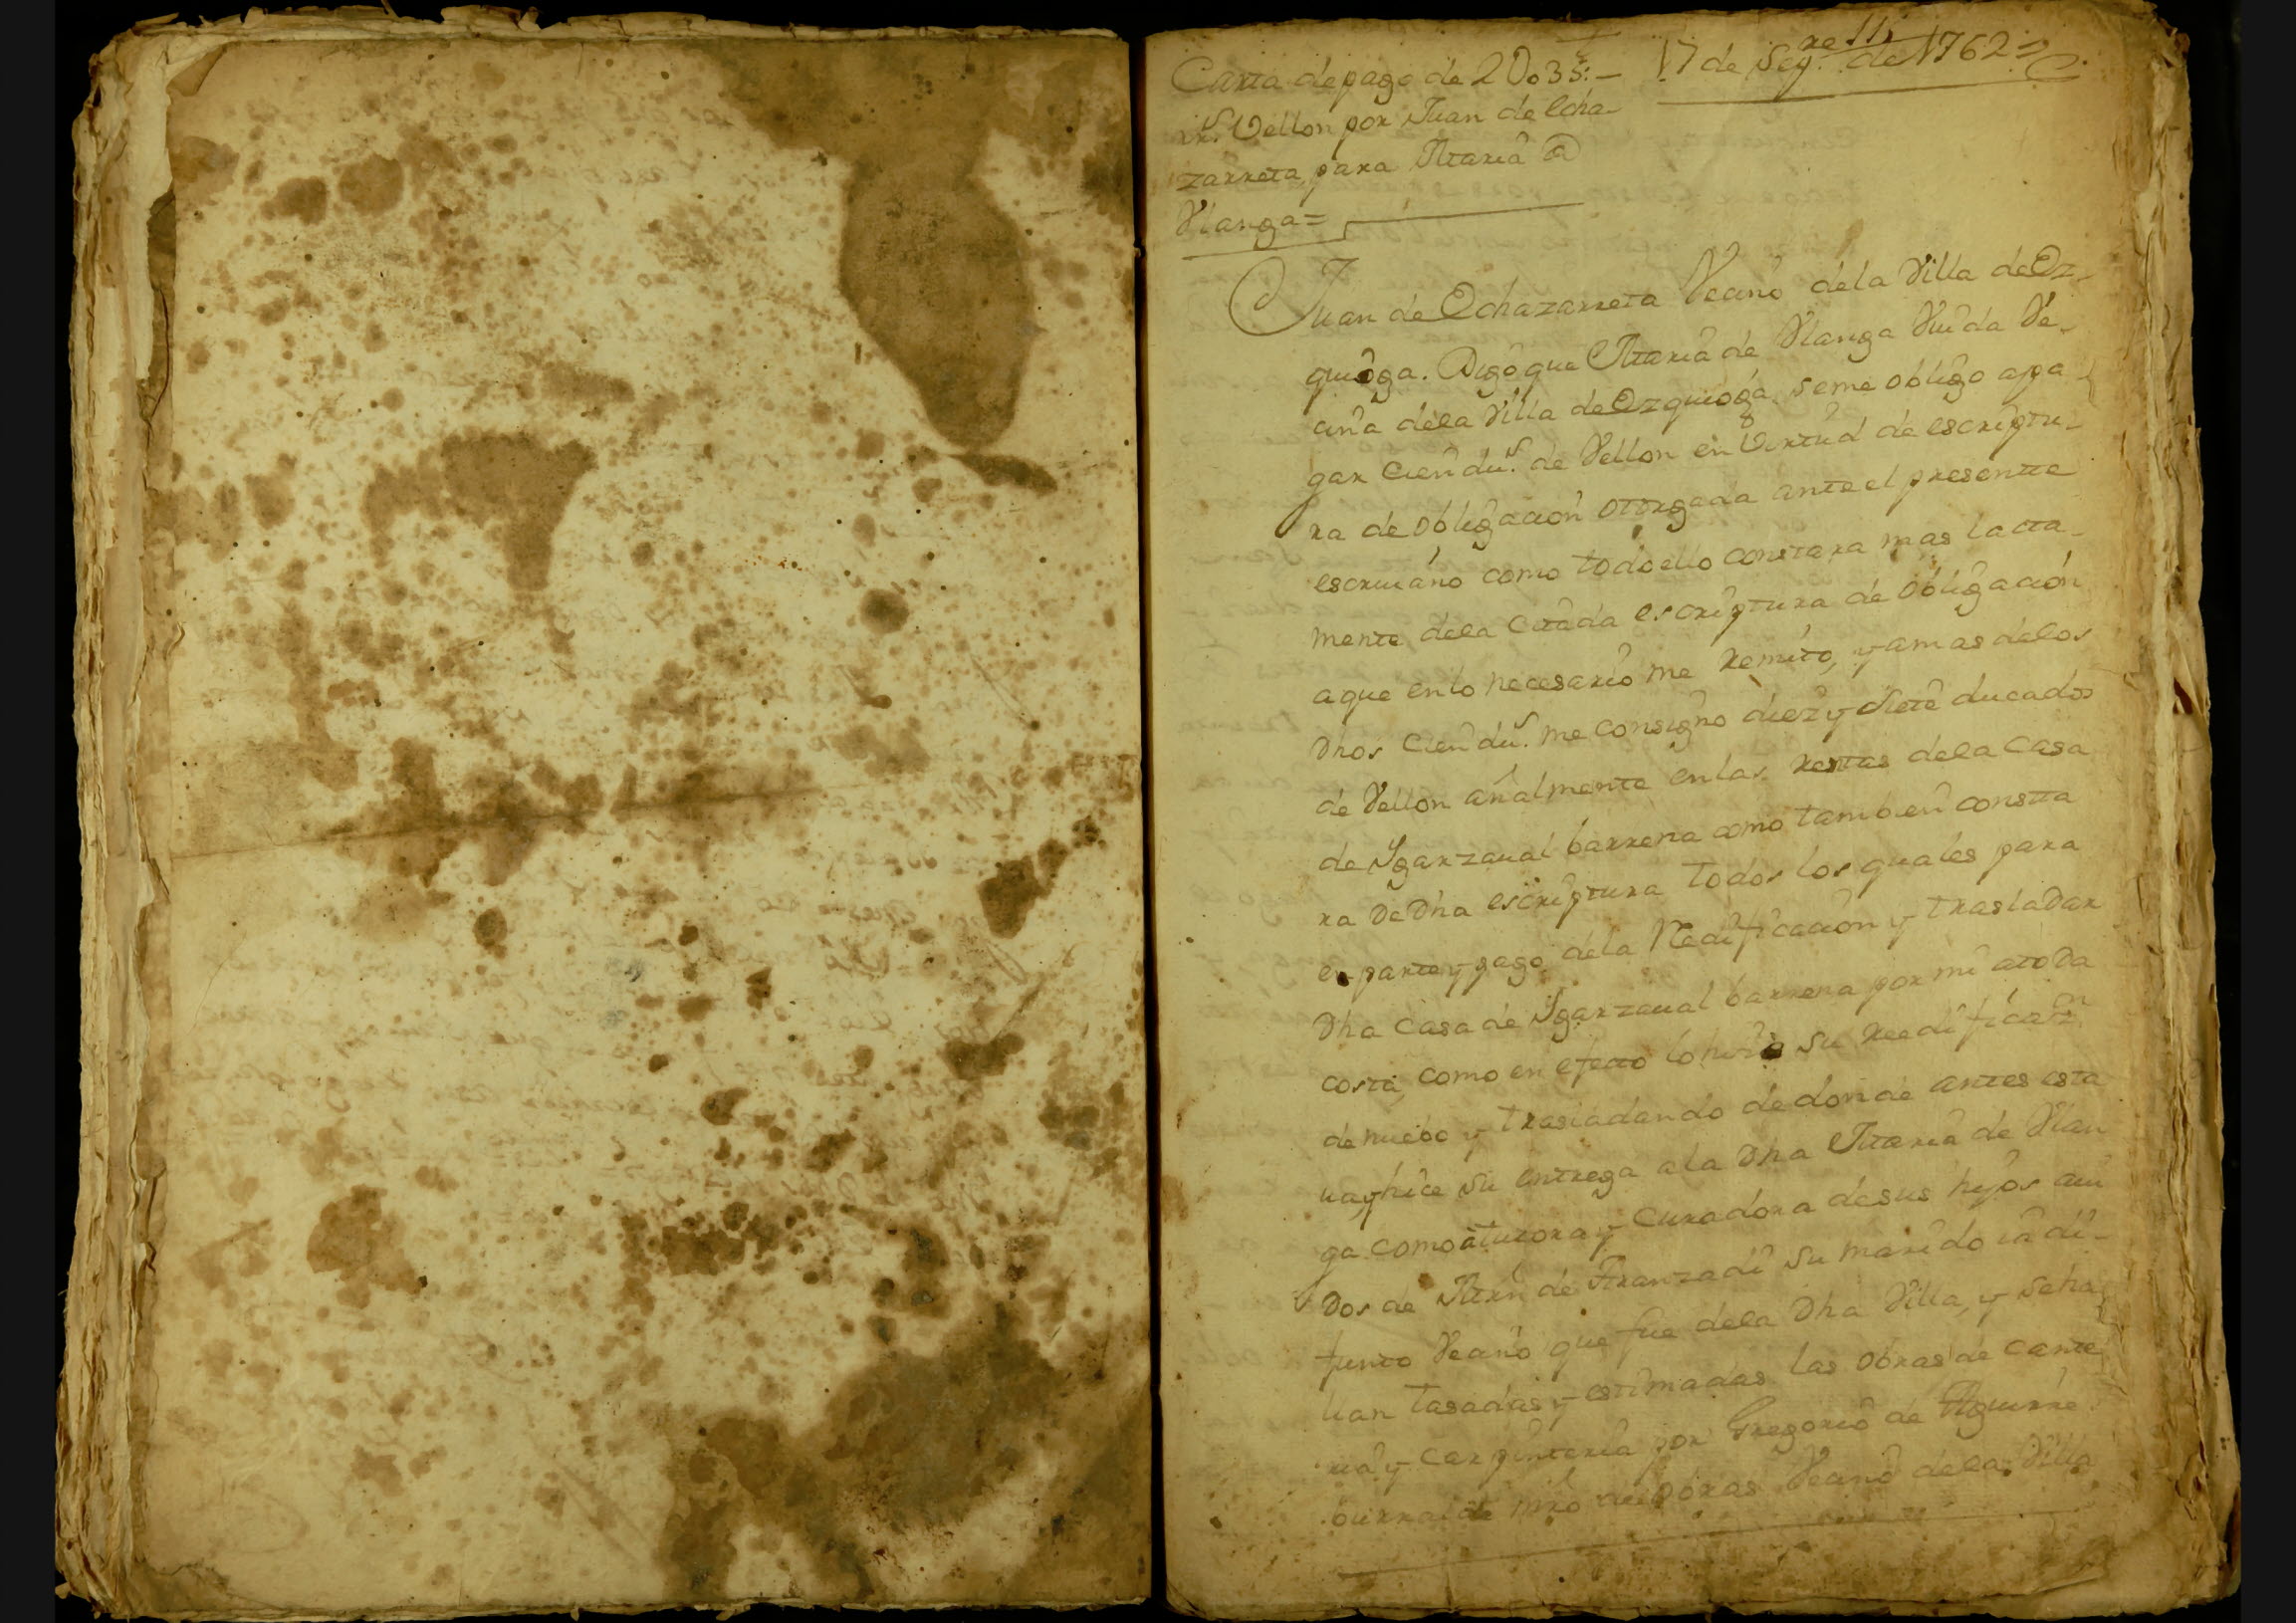 Carta de pago de 2U035.—
rs. Vellon por Juan de Echa-
zarreta para Maria @
Vlanga=
17 de Sepre. de 1762=
Juan de Echazarreta Vecino dela Villa de Ez-
quioga. Digo que Maria de Vlanga Viuda Ve-
cina dela Villa de Ezquioga, seme obligo apa-
gar cien dus. de Vellon en Virtud de escriptu-
ra de obligacion otorgada ante el presentte
escriuano como todo ello constara mas lacta-
mente dela citada escriptura de obligacion
aque enlo necesario me Remito, y amas delos
Dhos cien dus. me consigno diez y siete ducados
de Vellon añalmente enlas Rentas dela casa
de Ygarzaual barrena como tambien constta
ra De Dha escriptura todos los quales para
en parte y pago dela Redificacion y trasladar
Dha casa de Ygarzaual barrena por mi atoda
costa, como en efecto lo hize su Reedificazn
de nuebo y trasladando de donde antes esta
ua, y hice su entrega ala Dha Maria de Vlan
ga como a tutora y Curadora desus hijos aui
Dos de Mrn de Aranzadi su marido ia di-
funto Vecino que fue dela Dha Villa, y seha
llan tasadas y estimadas las obras de cante
ria y carpinteria por Gregorio de Aguirre
burralde mro de obras Vecino dela Villa